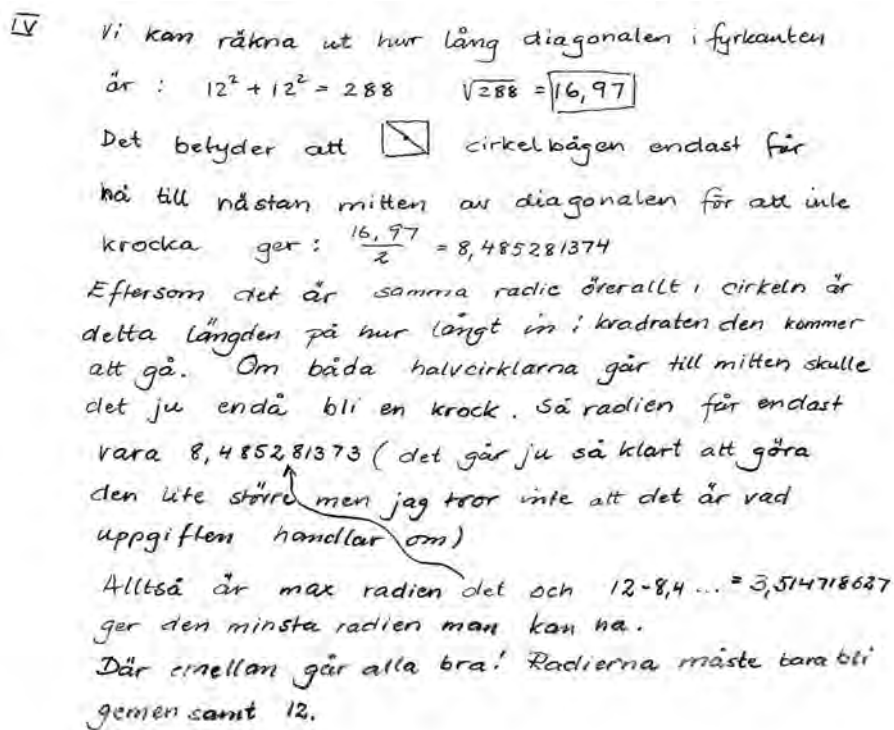 IV Vi kan räkna ut hur lång diagonalen i fyrkanten
är : 12² + 12² = 288 √288 = 16,97
Det betyder att cirkelbågen endast får
nå till nästan mitten av diagonalen för att inte
krocka ger : 16,97/2 = 8,485281374
Eftersom det är samma radie överallt i cirkeln är
detta längden på hur långt in i kvadraten den kommer
att gå. Om båda halvcirklarna går till mitten skulle
det ju endå bli en krock. Så radien får endast
vara 8,485281373 (det går ju så klart att göra
den lite större men jag tror inte att det är vad
uppgiften handlar om)
Alltså är max radien det och 12-8,4... = 3,514718627
ger den minsta radien man kan ha.
Där emellan går alla bra! Radierna måste bara bli
gemensamt 12.